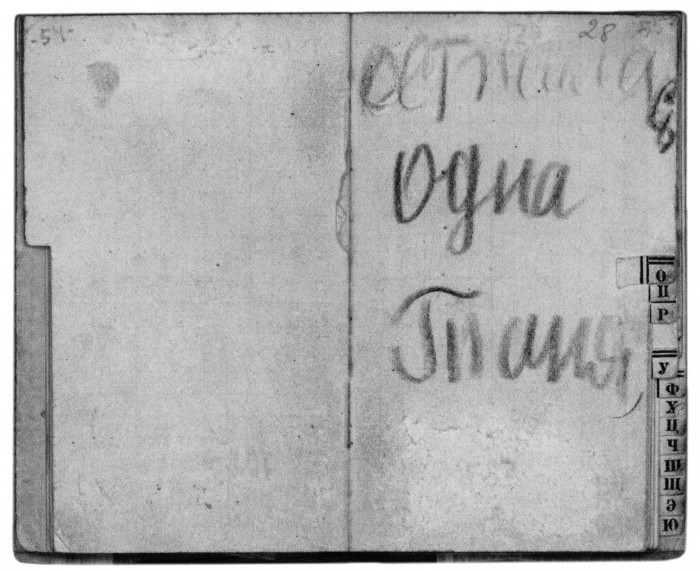 -54-
28
Осталась
одна
Таня
О
П
Р
У
Ф
Х
Ц
Ч
Ш
Щ
Э
Ю